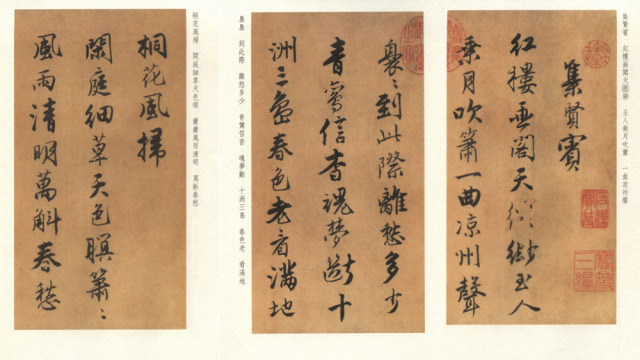 集賢賓 紅樓畫閣天縹緲 玉人乘月吹簫 一曲涼州聲
集賢賓
紅樓画閣天縹緲玉人
乘月吹簫一曲凉州聲
裊〻到此際離愁多少
青鸞信杳魂夢斷十
洲三島春色老看滿地
裊裊 到此際 離愁多少 青鸞信杳 魂夢斷 十洲三島 春色老 看滿地
桐花風掃 閒庭細草天色暝 蕭蕭風雨清明 萬斛春愁
桐花風掃
閑庭細草天色暝蕭〻
風雨清明萬斛春愁